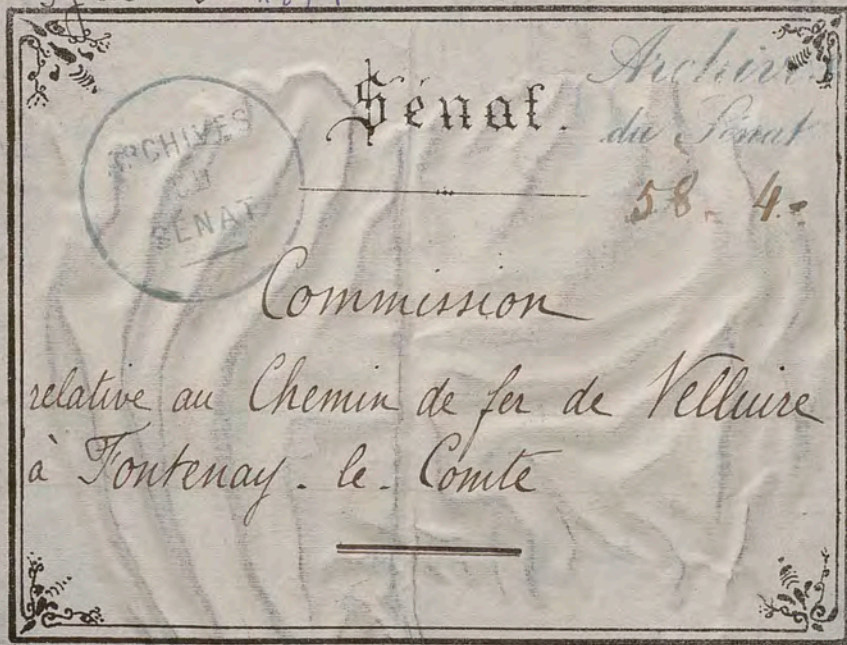 Sénat.
Archives
du Sénat
ARCHIVES
DU
SÉNAT
58. 4.
Commission
relative au Chemin de fer de Velluire
à Fontenay. le. Comte